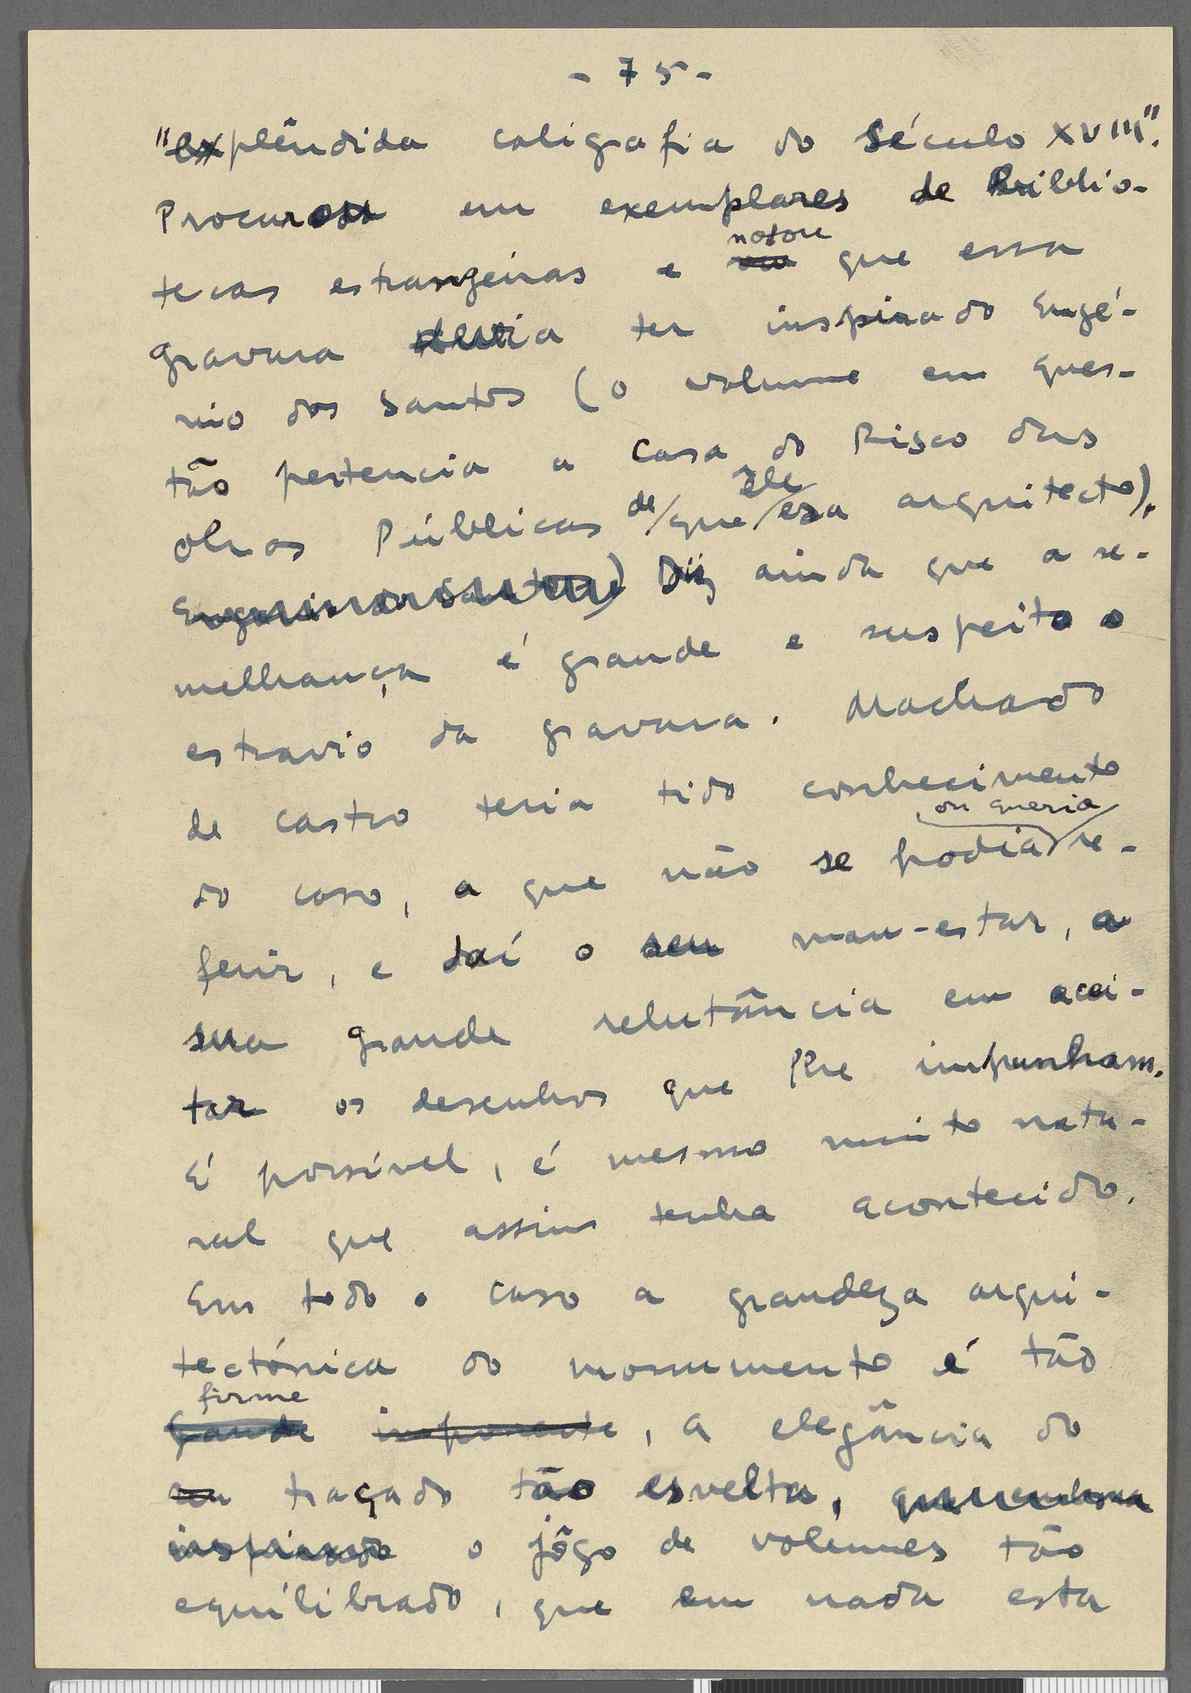 - 75 -
"explêndida caligrafia do século XVIII".
Procurou em exemplares de Biblio-
notou
tecas estrangeiras e que essa
gravura devia ter inspirado Eugé-
nio dos Santos (o volume em ques-
tão pertencia a Casa do Risco das
êle
obras Públicas de que era arquitecto).
Diz ainda que a se-
melhança é grande e suspeito o
estravio da gravura. Machado
de Castro teria tido conhecimento
ou queria
do caso, a que não se podia re-
ferir, e daí o seu mau-estar, a
sua grande relutância em acei-
tar os desenhos que lhe impunham.
É possível, é mesmo muito natu-
ral que assim tenha acontecido.
Em todo o caso a grandeza arqui-
tectónica do monumento é tão
firme
grande imponente, a elegância do
seu traçado tão esvelta,
inspirado o jôgo de volumes tão
equilibrado, que em nada esta